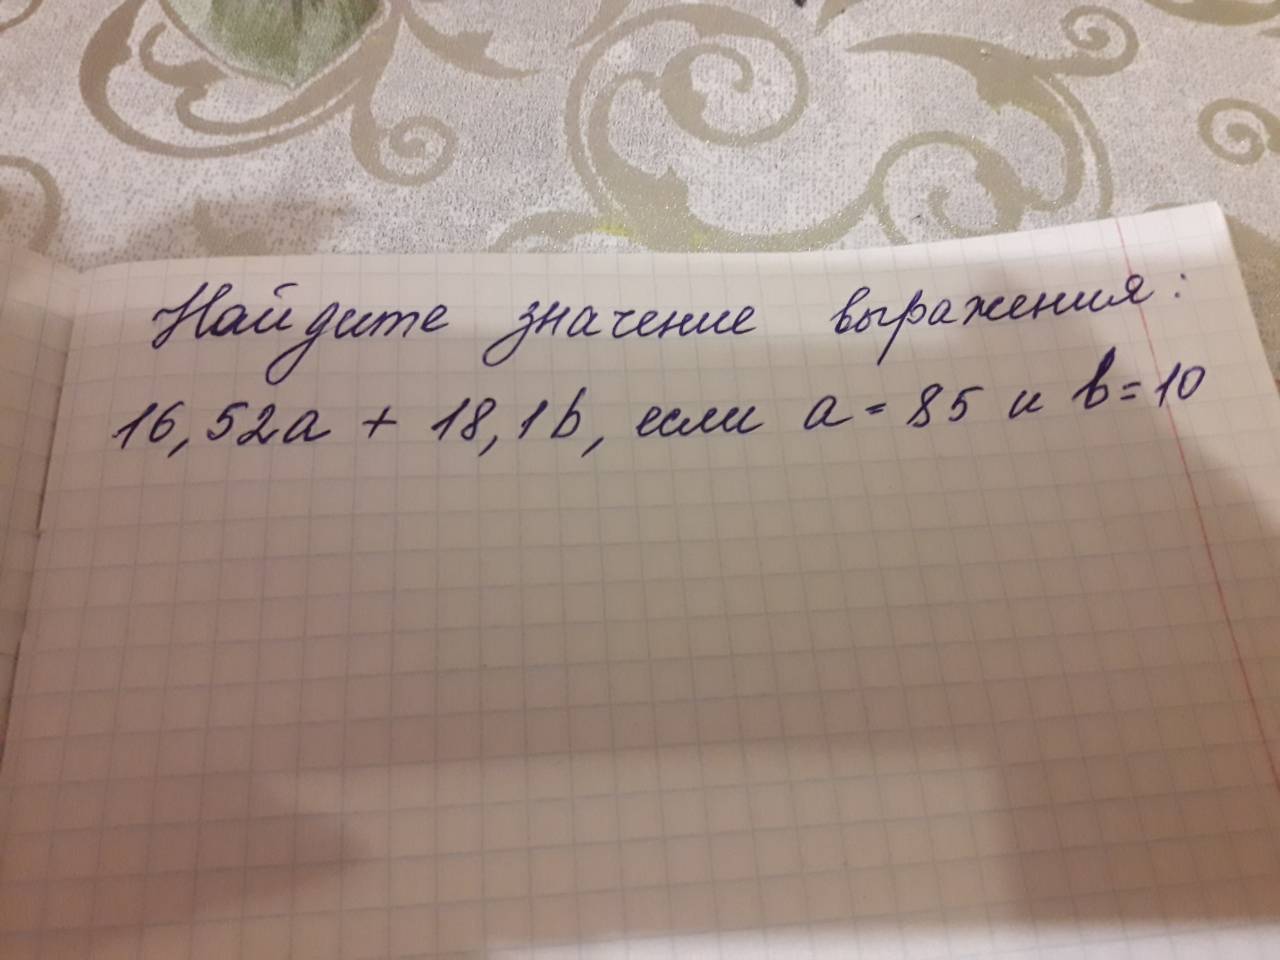 Найдите значение выражения:
16,52a + 18,1b, если a = 85 и b = 10